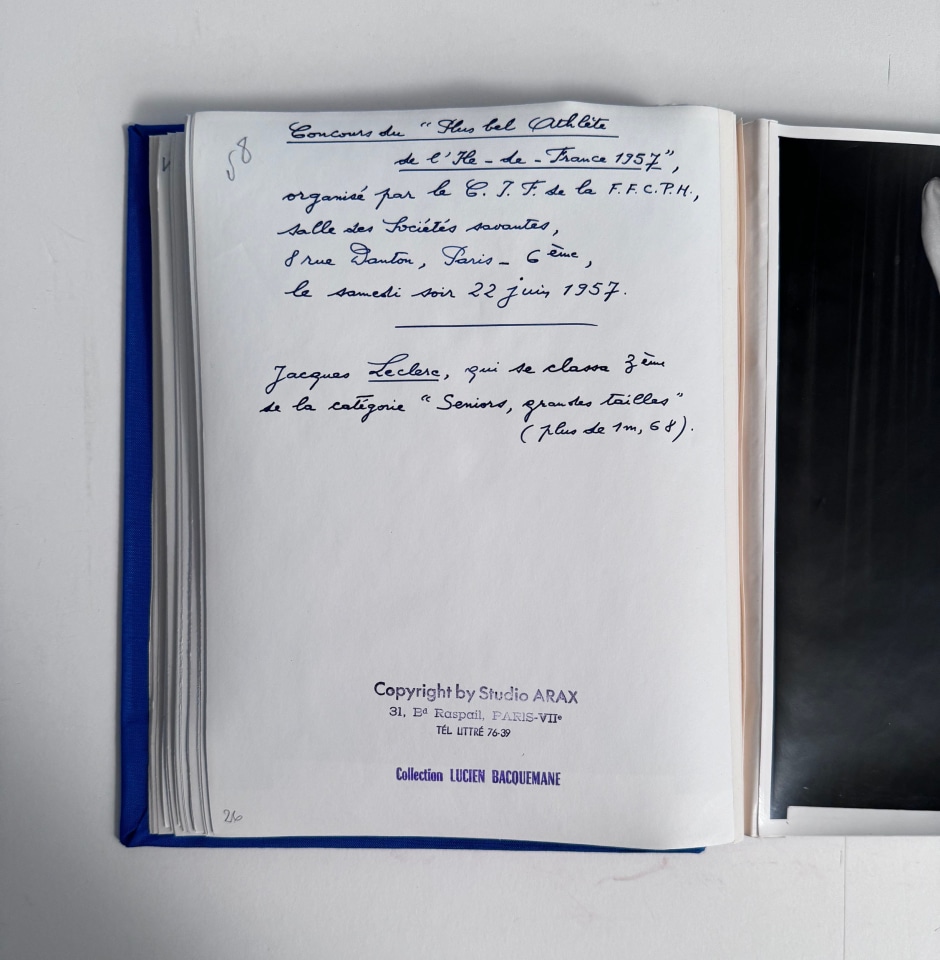 58
Concours du "Plus bel Athlète
de l'Ile-de-France 1957",
organisé par le C.I.F. de la F.F.C.P.H.,
salle des Sociétés savantes,
8 rue Danton, Paris-6ème,
le samedi soir 22 juin 1957.
Jacques Leclerc, qui se classa 3ème
de la catégorie "Seniors, grandes tailles"
(plus de 1m,68).
Copyright by Studio ARAX
31, Bd Raspail, PARIS-VIIe
TÉL LITTRÉ 76-39
Collection LUCIEN BACQUEMANE
26